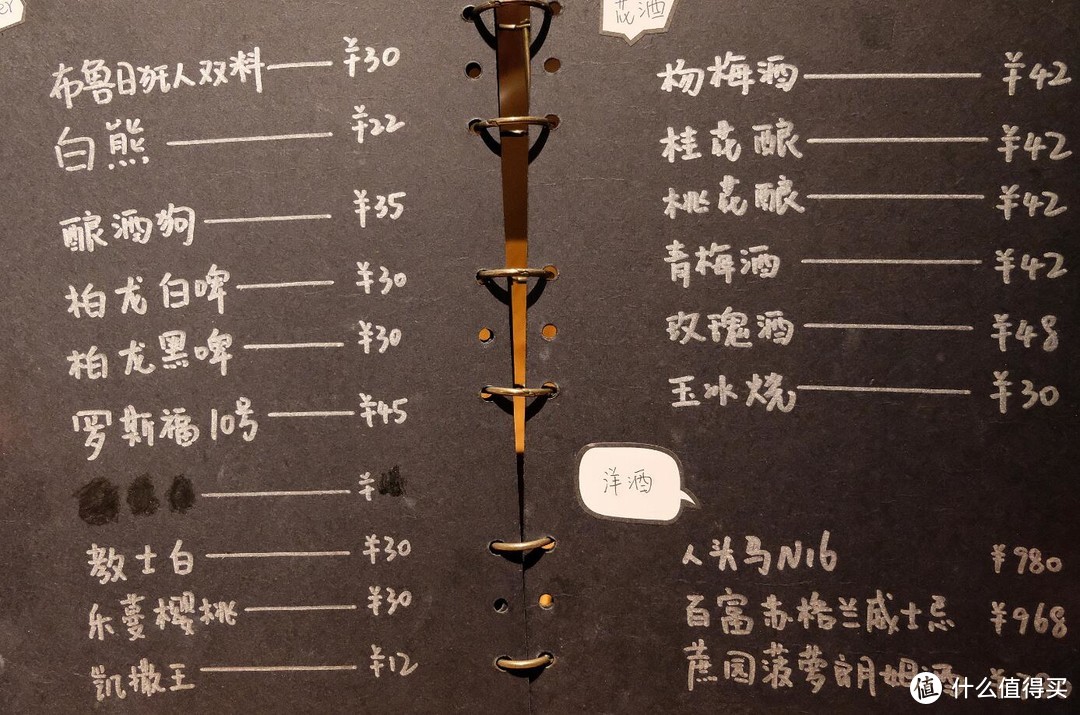 er
布鲁日狂人双料 ¥30
白熊 ¥22
酿酒狗 ¥35
柏龙白啤 ¥30
柏龙黑啤 ¥30
罗斯福10号 ¥45
¥
教士白 ¥30
乐蔓樱桃 ¥30
凯撒王 ¥12
花酒
杨梅酒 ¥42
桂花酿 ¥42
桃花酿 ¥42
青梅酒 ¥42
玫瑰酒 ¥48
玉冰烧 ¥30
洋酒
人头马N16 ¥980
百富苏格兰威士忌 ¥968
蔗园菠萝朗姆酒 ¥
值 什么值得买